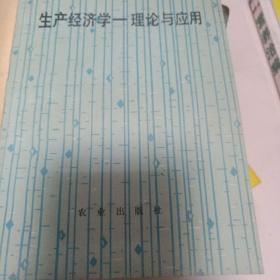 生产经济学—理论与应用
农业出版社